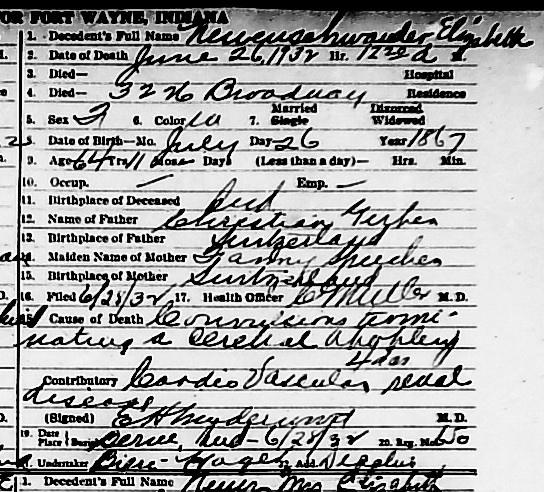 OR FORT WAYNE, INDIANA
1. Decedent's Full Name Neuenschwander, Elizabeth
2. Date of Death June 26, 1932 Hr. M.
3. Died— Hospital
4. Died— Broadway Residence
Married Divorced
5. Sex F 6. Color W 7. Single Widowed
8. Date of Birth—Mo. July Day 26 Year 1867
9. Age 64 Yrs. 11 Mos. Days (Less than a day)— Hrs. Min.
10. Occup. — Emp. —
11. Birthplace of Deceased Ind
12. Name of Father Christian Gerber
13. Birthplace of Father Switzerland
14. Maiden Name of Mother Fanny
15. Birthplace of Mother Switzerland
16. Filed 6/28/32 17. Health Officer M. D.
18. Cause of Death Convulsions termi-
nating a Cerebral Apoplexy
4 das
Contributory Cardio Vascular renal
disease
(Signed) M. D.
19. Date Place Burial Berne, Ind—6/28/32 20. Reg. No.
21. Undertaker 22. Add.
1. Decedent's Full Name Mrs Elizabeth